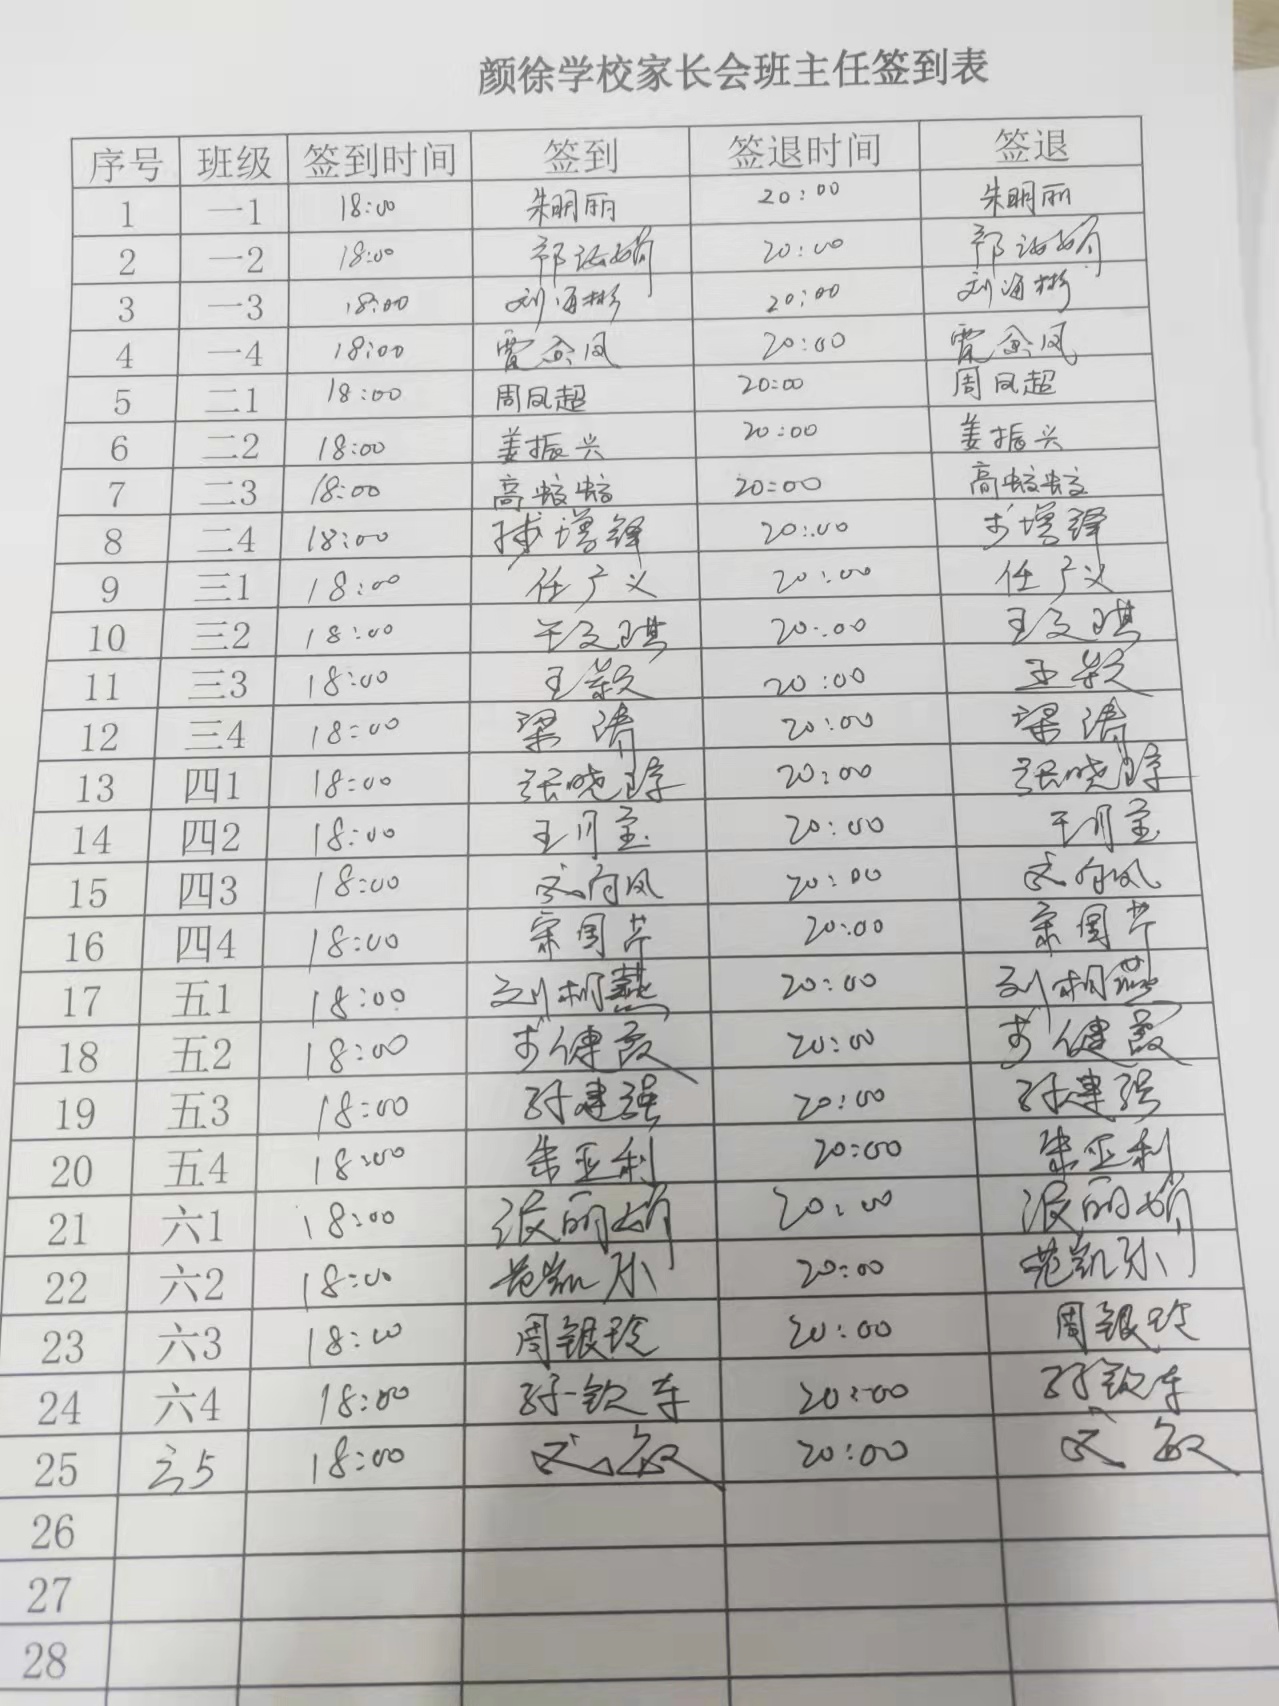 颜徐学校家长会班主任签到表
序号 班级 签到时间 签到 签退时间 签退
1 一1 18:00 朱明丽 20:00 朱明丽
2 一2 18:00 20:00
3 一3 18:00 刘海彬 20:00 刘海彬
4 一4 18:00 20:00
5 二1 18:00 周凤超 20:00 周凤超
6 二2 18:00 姜振兴 20:00 姜振兴
7 二3 18:00 高蛟蛟 20:00 高蛟蛟
8 二4 18:00 增锋 20:00 增锋
9 三1 18:00 任广义 20:00 任广义
10 三2 18:00 王文琪 20:00 王文琪
11 三3 18:00 王颖 20:00 王颖
12 三4 18:00 梁涛 20:00 梁涛
13 四1 18:00 张晓 20:00 张晓
14 四2 18:00 王月 20:00 王月
15 四3 18:00 20:00
16 四4 18:00 20:00
17 五1 18:00 刘相燕 20:00 刘相燕
18 五2 18:00 健霞 20:00 健霞
19 五3 18:00 孙建强 20:00 孙建强
20 五4 18:00 朱亚利 20:00 朱亚利
21 六1 18:00 丽娟 20:00 丽娟
22 六2 18:00 范凯 20:00 范凯
23 六3 18:00 周银玲 20:00 周银玲
24 六4 18:00 孙钦东 20:00 孙钦东
25 三5 18:00 武敏 20:00 武敏
26
27
28